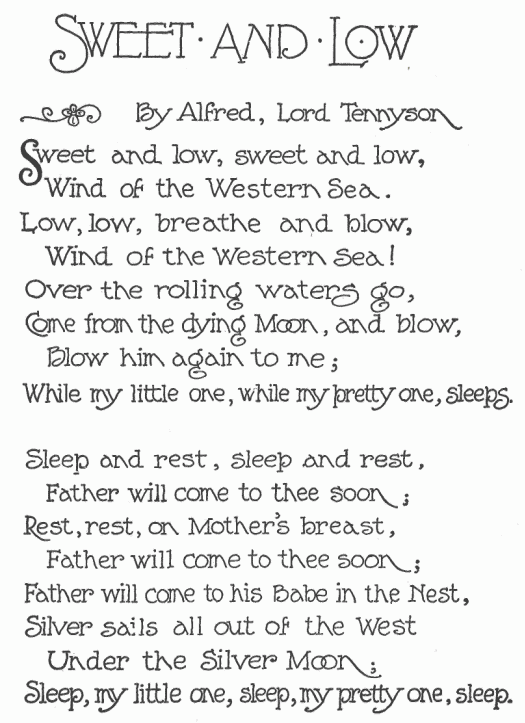 SWEET · AND · LOW
By Alfred, Lord Tennyson
Sweet and low, sweet and low,
Wind of the Western Sea.
Low, low, breathe and blow,
Wind of the Western Sea!
Over the rolling waters go,
Come from the dying Moon, and blow,
Blow him again to me;
While my little one, while my pretty one, sleeps.
Sleep and rest, sleep and rest,
Father will come to thee soon;
Rest, rest, on Mother's breast,
Father will come to thee soon;
Father will come to his Babe in the Nest,
Silver sails all out of the West
Under the Silver Moon;
Sleep, my little one, sleep, my pretty one, sleep.